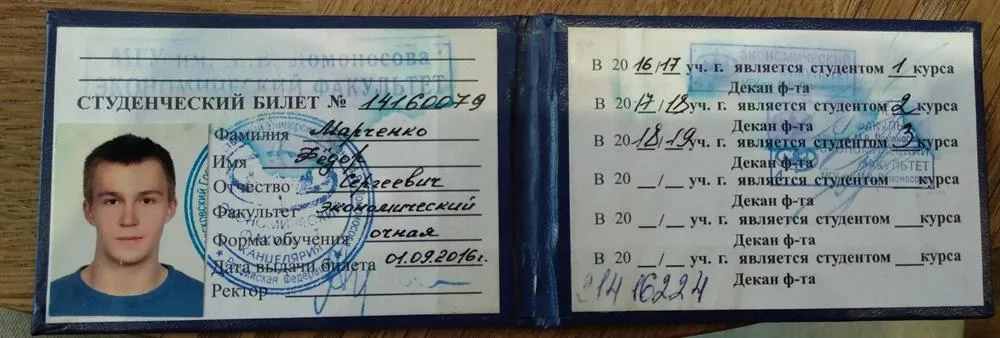 МГУ им. М.В. Ломоносова
ЭКОНОМИЧЕСКИЙ ФАКУЛЬТЕТ
СТУДЕНЧЕСКИЙ БИЛЕТ № 14160079
Фамилия Марченко
Имя Фёдор
Отчество Сергеевич
Факультет экономический
Форма обучения очная
Дата выдачи билета 01.09.2016г.
Ректор
КАНЦЕЛЯРИЯ
Российская Федерация
ЭКОНОМИЧЕСКИЙ
В 2016/17 уч. г. является студентом 1 курса
Декан ф-та
В 2017/18 уч. г. является студентом 2 курса
Декан ф-та
В 2018/19 уч. г. является студентом 3 курса
Декан ф-та
В 20__/__ уч. г. является студентом ___ курса
Декан ф-та
В 20__/__ уч. г. является студентом ___ курса
Декан ф-та
В 20__/__ уч. г. является студентом ___ курса
Декан ф-та
ФАКУЛЬТЕТ
31416224